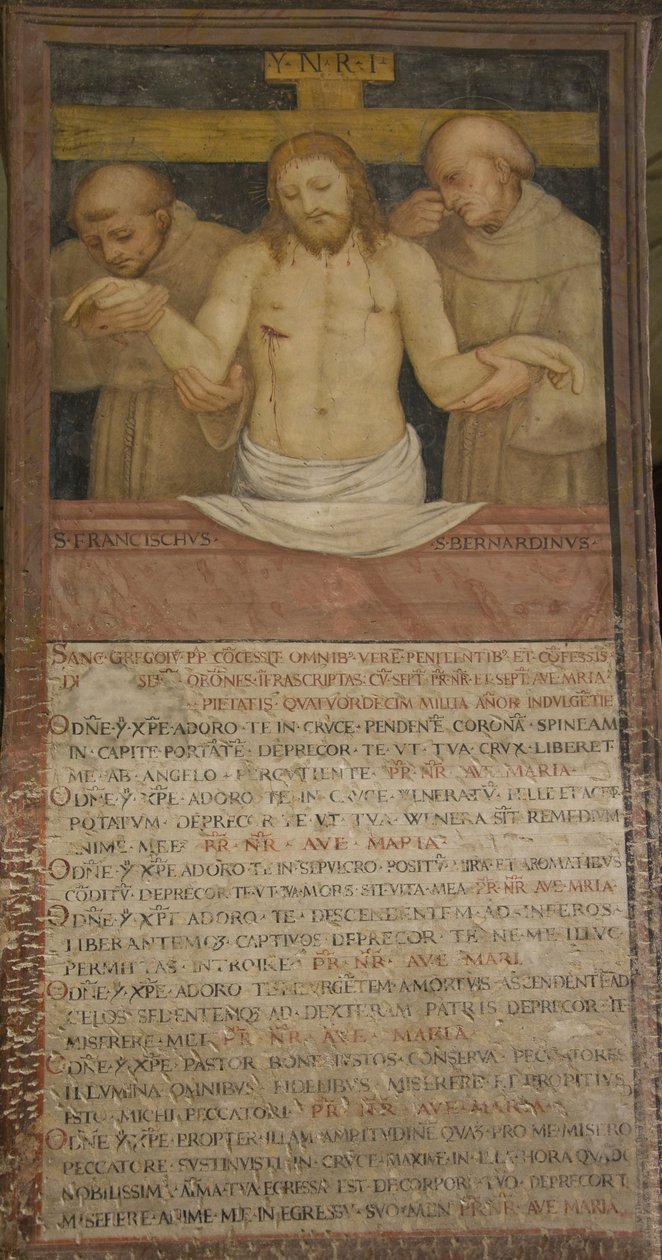 ·Y·N·R·I·
·S·FRANCISCHVS·
·S·BERNARDINVS·
SANC·GREGOIV·P̄P·CŌCESSIT·OMNIB⁹·VERE·PENITENTIB⁹·ET·CŌFESSIS·
ORŌNES·ĪFRASCRIPTAS·CV̄·SEPT·P̄R·N̄R·ET·SEPT·AVE·MRIA·
PIETATIS·QVATVORDECIM·MILLIA·AÑOR·INDVLGĒTIE
O·DN̄E·Y̅·XP̄E·ADORO·TE·IN·CRVCE·PENDENTĒ·CORONĀ·SPINEAM
IN·CAPITE·PORTĀTĒ·DEPRECOR·TE·VT·TVA·CRVX·LIBERET
ME·AB·ANGELO·PERCVTIENTE·P̄R·N̄R·AVE·MARIA·
O·DN̄E·Y̅·XP̄E·ADORO·TE·IN·CRVCE·WLNERATV̄·FELLE·ET·ACET
POTATVM·DEPRECOR·TE·VT·TVA·WLNERA·SĪT·REMEDIVM
ANIME·MEE·P̄R·N̄R·AVE·MARIA·
O·DN̄E·Y̅·XP̄E·ADORO·TE·IN·SEPVLCRO·POSITV̄·MIRA·ET·AROMATIBVS
CŌDITV̄·DEPRECOR·TE·VT·TVA·MORS·SIT·VITA·MEA·P̄R·N̄R·AVE·MRIA·
O·DN̄E·Y̅·XP̄E·ADORO·TE·DESCENDENTEM·AD·INFEROS·
LIBERANTEMQ3·CAPTIVOS·DEPRECOR·TE·NE·ME·ILLVC·
PERMITTAS·INTROIRE·P̄R·N̄R·AVE·MARI
O·DN̄E·Y̅·XP̄E·ADORO·TE·RESVRGĒTEM·A·MORTVIS·ASCENDENTĒ·AD
CELOS·SEDENTEMQ3·AD·DEXTERAM·PATRIS·DEPRECOR·TE
MISERERE·MEI·P̄R·N̄R·AVE·MARIA
O·DN̄E·Y̅·XP̄E·PASTOR·BONE·IVSTOS·CONSERVA·PECCATORES
ILLVMINA·OMNIBVS·FIDELIBVS·MISERERE·ET·PROPITIVS
ESTO·MICHI·PECCATORI·P̄R·N̄R·AVE·MARIA·
O·DN̄E·Y̅·XP̄E·PROPTER·ILLAM·AMARITVDINĒ·QVĀ3·PRO·ME·MISERO
PECCATORE·SVSTINVISTI·IN·CRVCE·MAXIME·IN·ILLA·HORA·QVĀDO
NOBILISSIMA·AĪMA·TVA·EGRESSA·EST·DE·CORPORE·TVO·DEPRECOR·T
MISERERE·ANIME·MEE·IN·EGRESSV·SVO·AMEN·P̄R·N̄R·AVE·MARIA